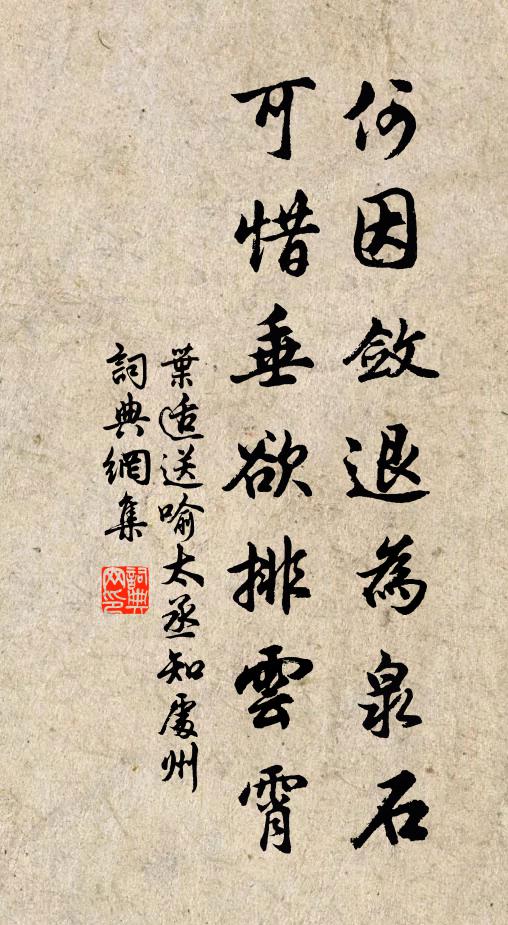 何因斂退為泉石
可惜垂欲排雲霄
葉适送喻太丞知處州
詞典網集
詞典網印